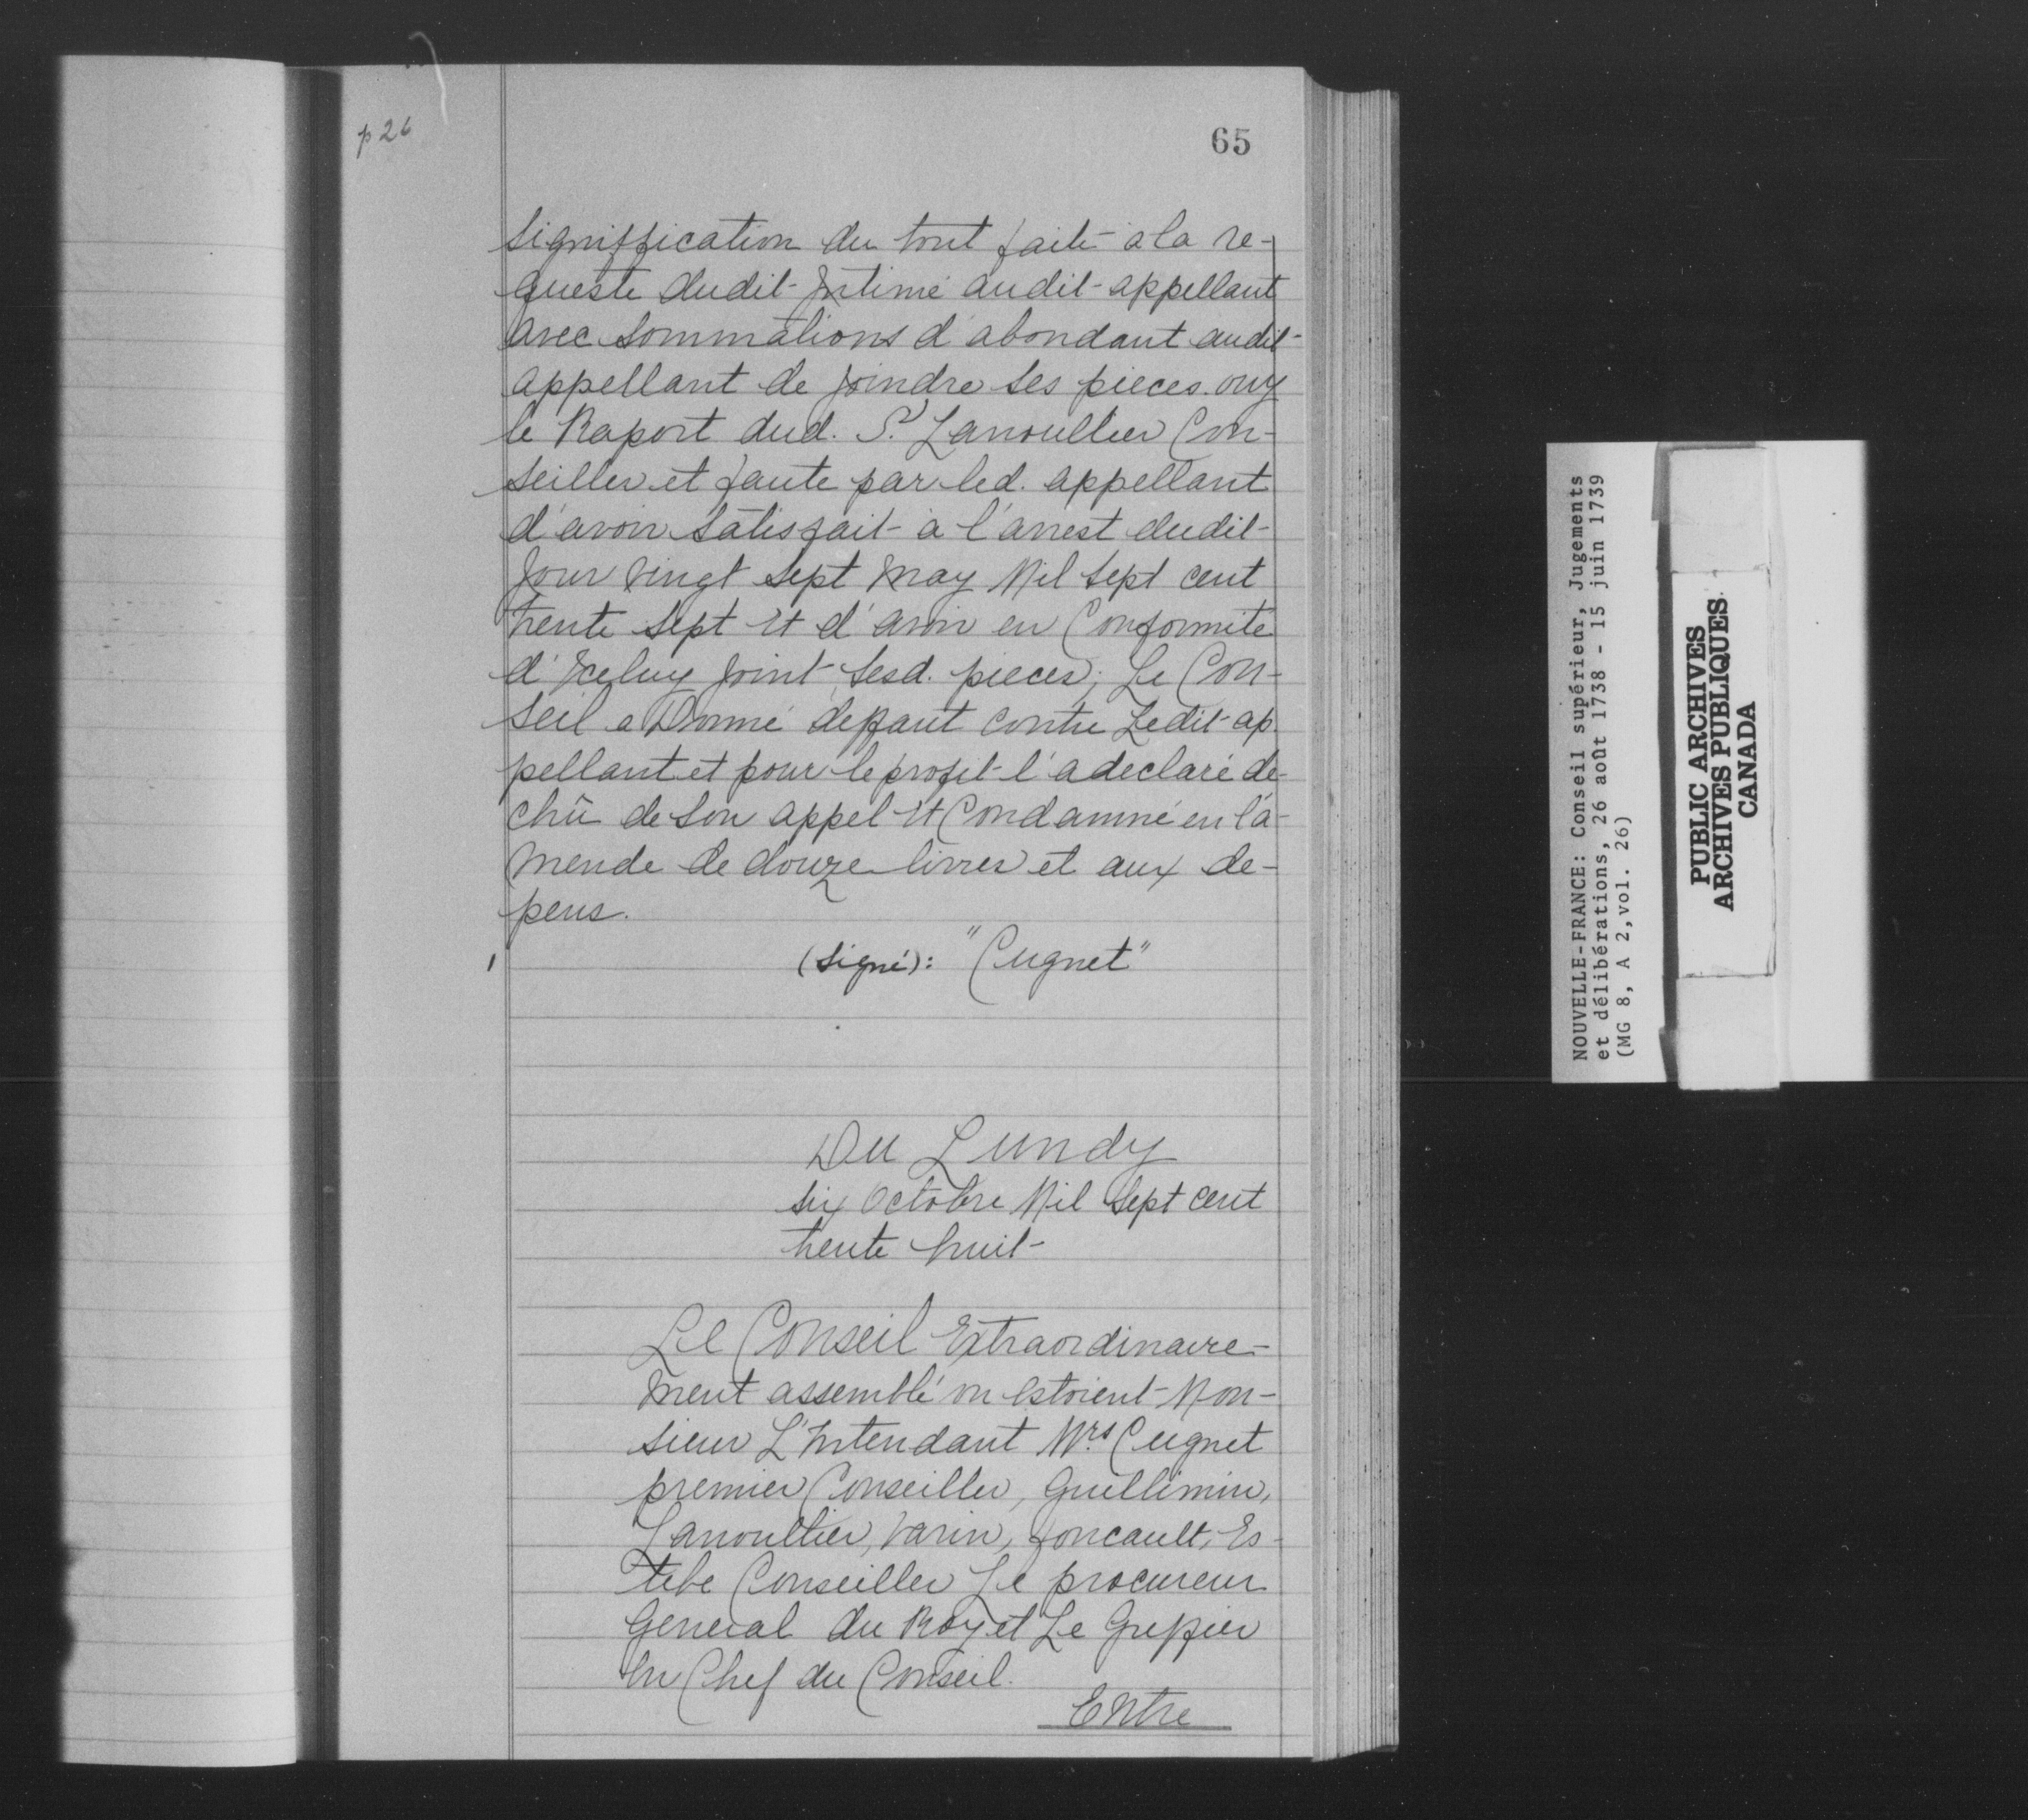 p 26
65
signiffication du tout faite a la re-
queste dudit Intimé audit appellant
avec sommations d'abondant audit
appellant de joindre ses pieces. ouy
le Raport dud. Sr Lanoullier Con-
seiller et faute par led. appellant
d'avoir satisfait à l'arrest dudit
Jour vingt sept may Mil sept cent
trente sept Et d'avoir en Conformité
d'Iceluy joint sesd. pieces; Le Con-
seil a Donné deffaut contre Ledit ap-
pellant et pour le profit l'a declaré de-
chû de son appel Et Condamné en l'a-
mende de douze livres et aux de-
pens.
(signé): "Cugnet"
Du Lundy
six Octobre Mil sept cent
trente huit
Le Conseil Extraordinaire-
ment assemblé ou Estoient Mon-
sieur L'Intendant Mrs Cugnet
premier Conseiller, Guillimin,
Lanoullier, Varin, foucault, Es-
tebe Conseiller Le procureur
General du Roy et Le Greffier
En Chef du Conseil.
Entre
NOUVELLE-FRANCE: Conseil supérieur, Jugements
et délibérations, 26 août 1738 - 15 juin 1739
(MG 8, A 2,vol. 26)
PUBLIC ARCHIVES
ARCHIVES PUBLIQUES
CANADA